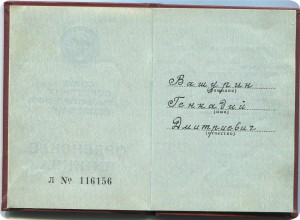 Л № 116156
Вашурин
(фамилия)
Геннадий
(имя)
Дмитриевич
(отчество)